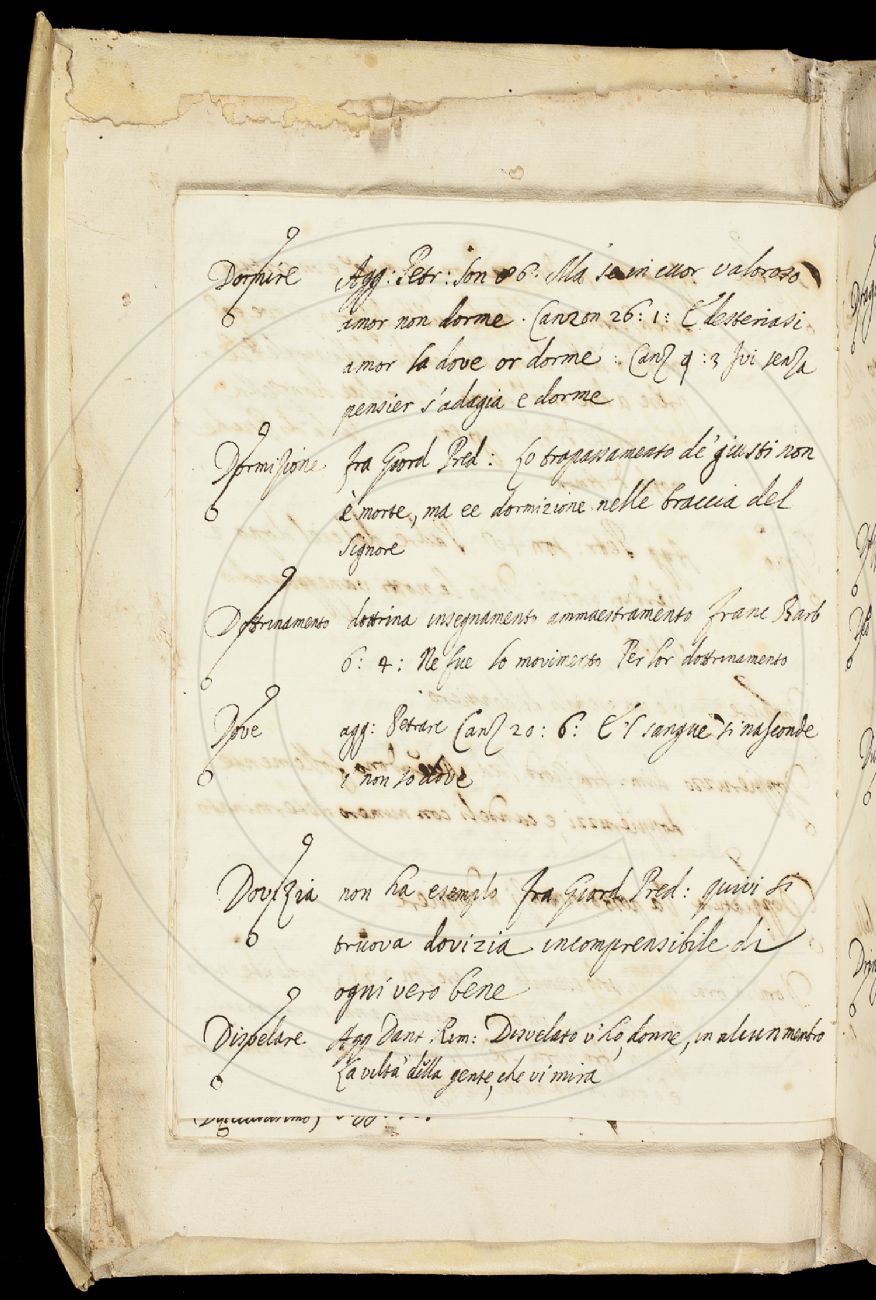 Dormire Agg: Petr: Son 86. Ma se in cuor valoroso
amor non dorme. Canzon 26: 1: E desteriasi
amor la dove or dorme: Canz 9: 3 Ivi senza
pensier s'adagia e dorme
Dormizione fra Giord Pred: Lo trapassamento de' giusti non
è morte, ma ee dormizione nelle braccia del
Signore
Dottrinamento dottrina insegnamento ammaestramento franc Barb
6: 4: Ne fue lo movimento Per lor dottrinamento
Dove agg: Petrarc Canz 20: 6: E 'l sangue si nasconde
i' non so dove
Dovizia non ha esemplo fra Giord Pred: quivi si
truova dovizia incomprensibile di
ogni vero bene
Disvelare Agg Dant Rim: Disvelato v'ho, donne, in alcun membro
La viltà della gente, che vi mira